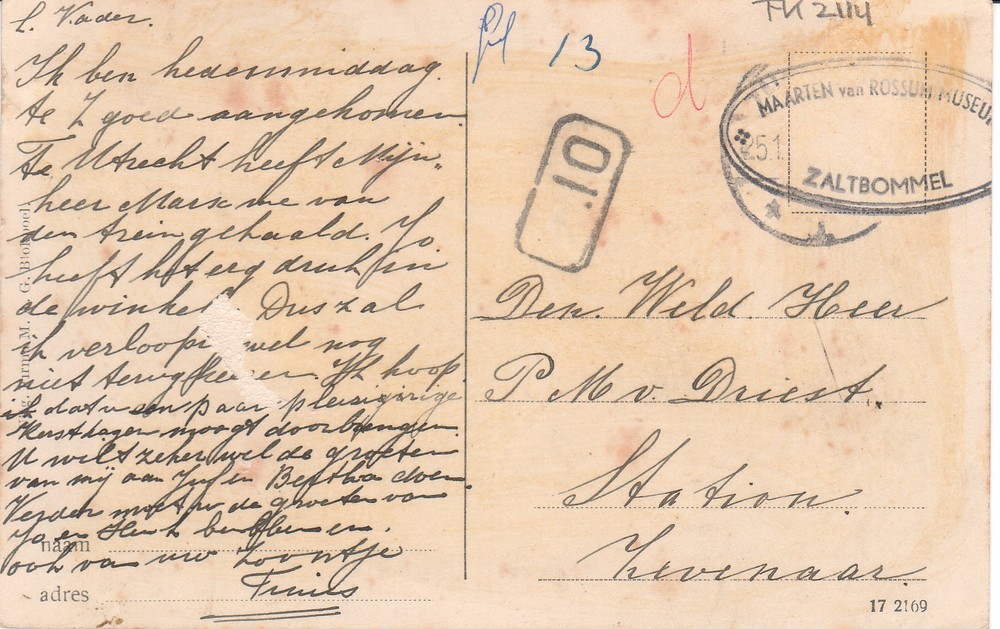 L. Vader.
Ik ben hedenmiddag.
te Z goed aangekomen
Te Utrecht heeft Mijn„
heer Mark me van
den trein gehaald. Jo.
heeft het erg druk in
de winkel Dus zal
ik verloopig wel nog
niet terugkeeren. Ik hoop.
ik dat u een paar pleizirige
Kerstdagen moogt doorbrengen.
U wilt zeker wel de groeten
van mij aan Juf en Bertha doen.
Verder moet u de groeten van
Jo en Henk hebben en.
ook van uw Zoontje
Tinus
naam
adres
G. Blokpoel
TK 2114
13
d
10.
MAARTEN van ROSSUM MUSEUM
25.1
ZALTBOMMEL
Den. Weld. Heer
P M v. Driest.
Station.
Zevenaar.
17 2169